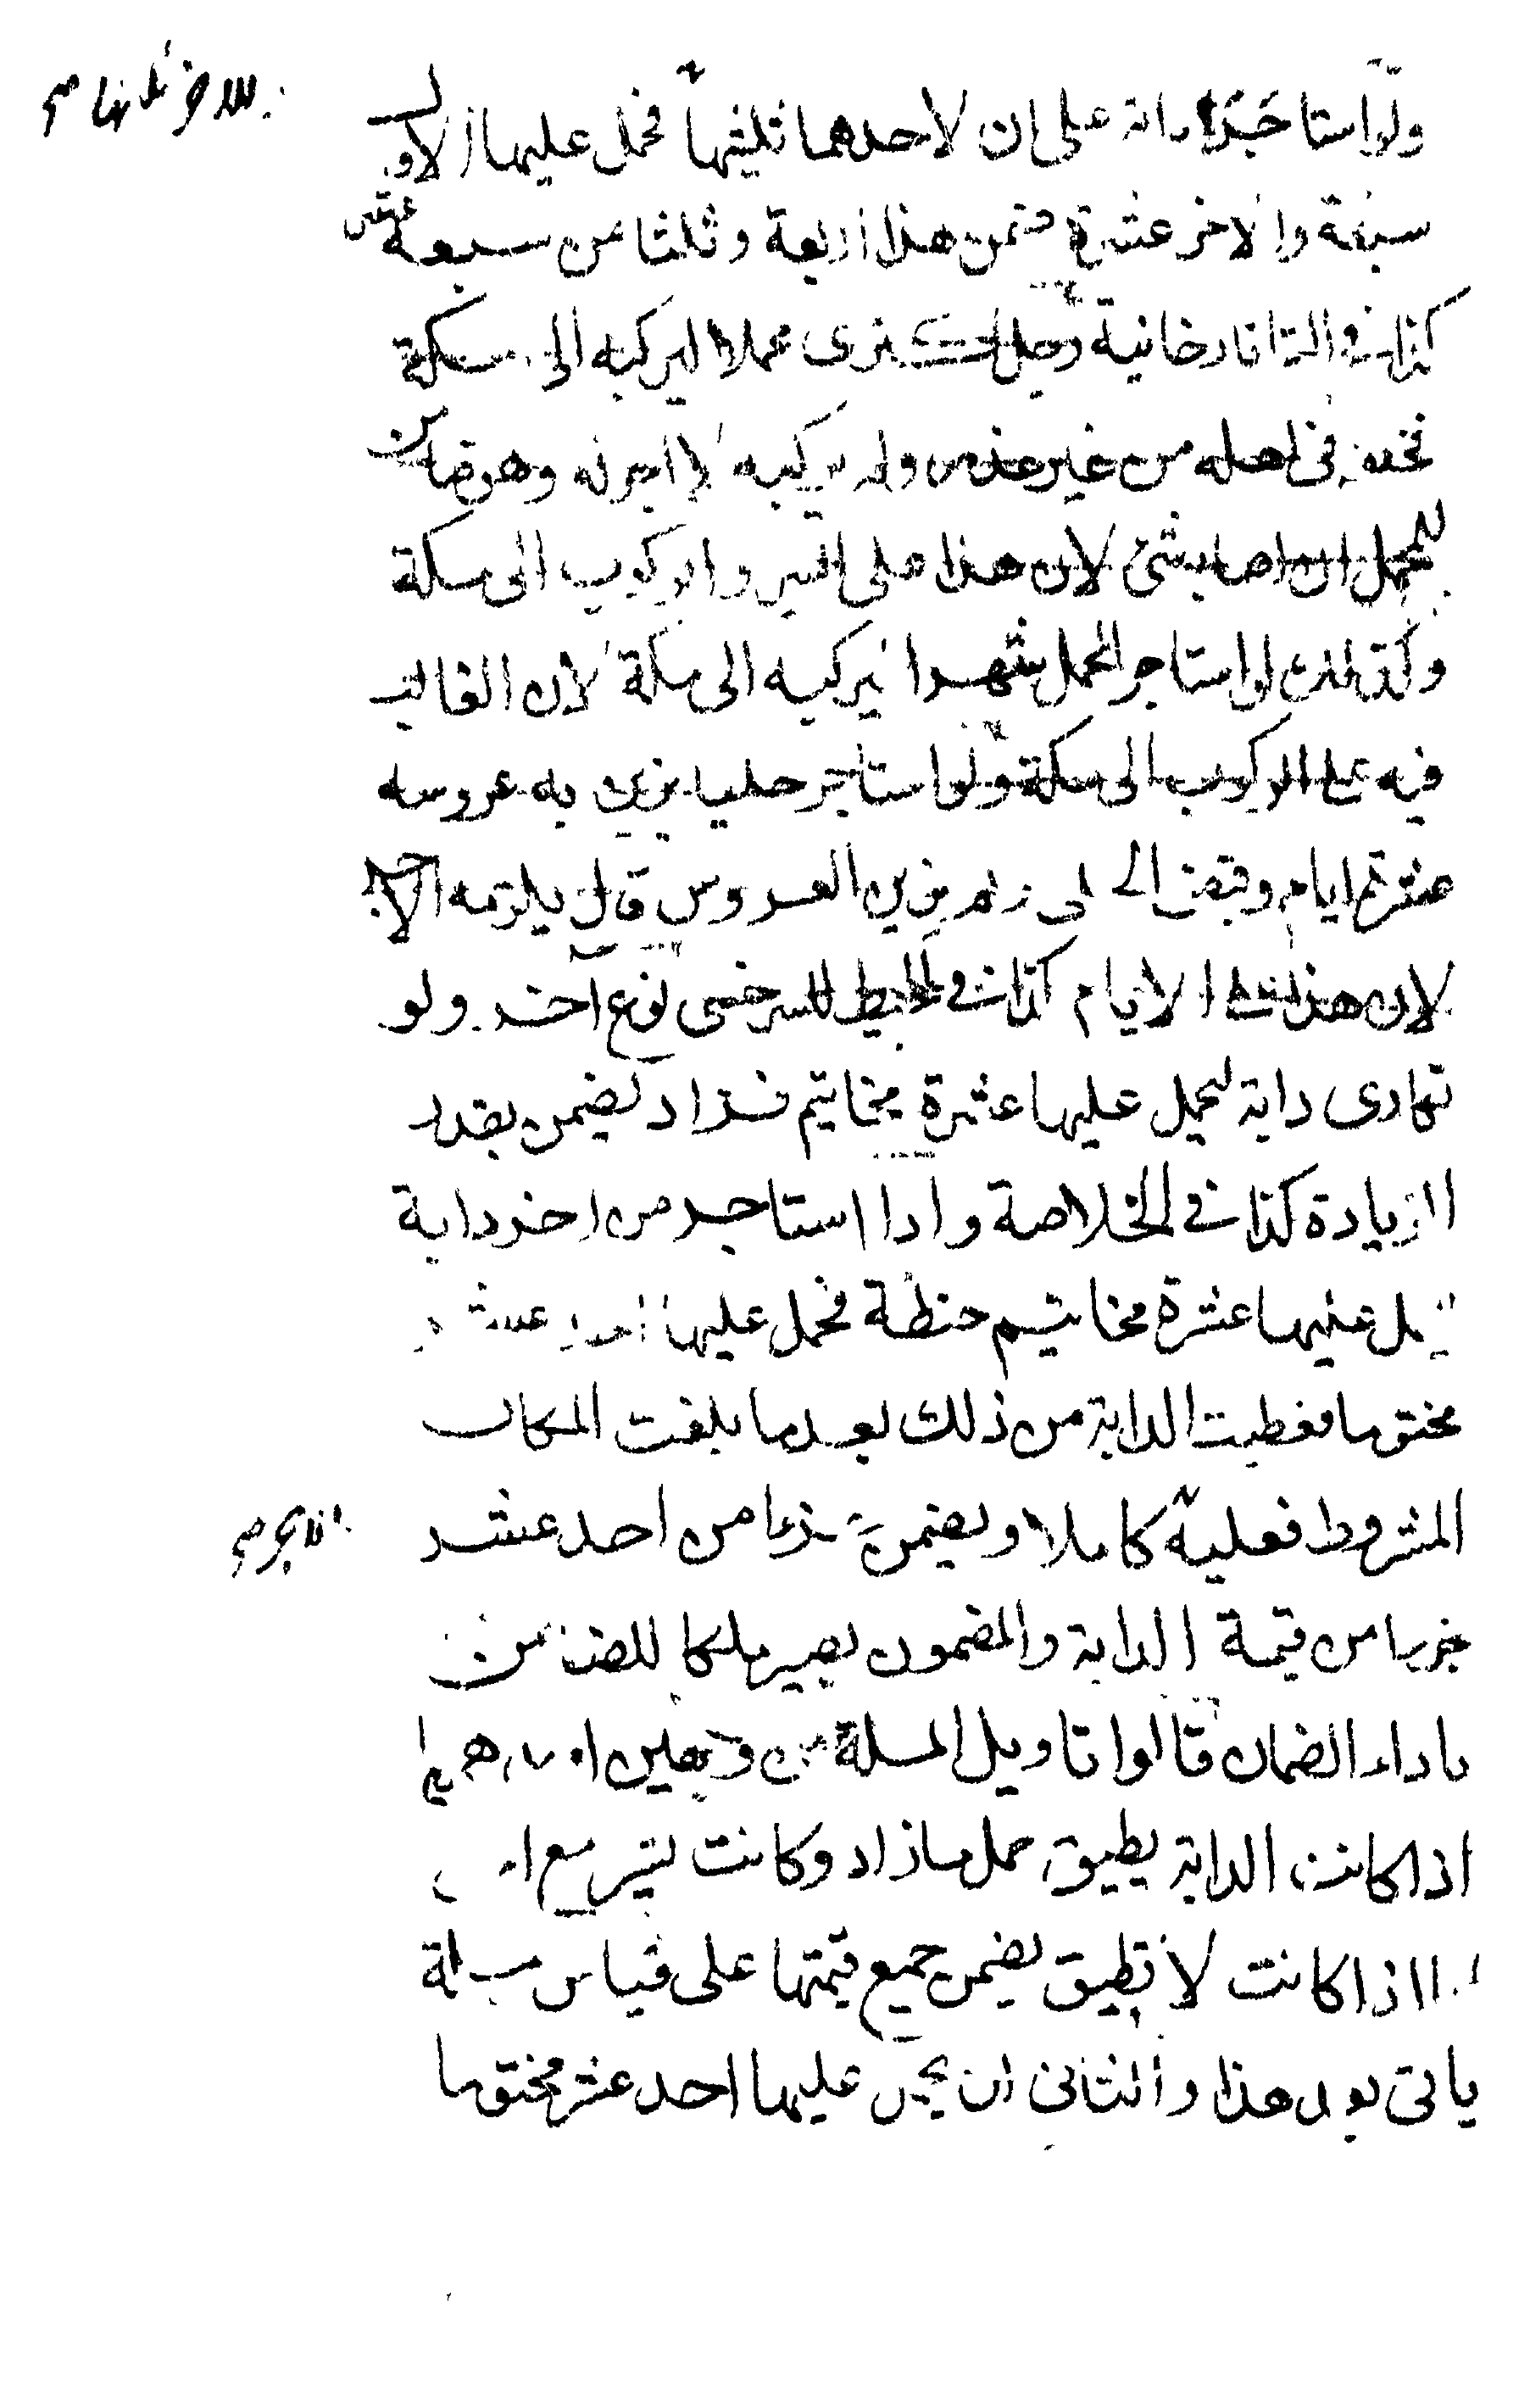 ولو استاجرا دابة على ان لاحدهما ثلثيها فحمل عليها الاول
للاخر ثلثها صح
سبعة والاخر عشرة ضمن هذا اربعة وثلثا من سبعة عشر
كذا في التاتارخانية رجل اكترى محملا ليركبه الى مكة
فخلفه في اهله من غير عذر ولم يركبه لا اجر له وهو ضامن
للمحمل ان اصابه شئ لان هذا على السير والركوب الى مكة
وكذلك لو استاجر المحمل شهرا ليركبه الى مكة لان الغالب
فيه على الركوب الى مكة ولو استاجر حليا يزين به عروسه
عشرة ايام وقبض الحلى ولم يزين العروس قال يلزمه الاجر
لان هذا على الايام كذا في المحيط للسرخسى نوع آخر ولو
تكارى دابة ليحمل عليها عشرة مخاتيم فزاد يضمن بقدر
الزيادة كذا في الخلاصة واذا استاجر من اخر دابة
ليحمل عليها عشرة مخاتيم حنطة فحمل عليها احد عشر
مختوما فعطبت الدابة من ذلك بعد ما بلغت المكان
المشروط فعليه كاملا ويضمن جزءا من احد عشر
الاجر صح
جزءا من قيمة الدابة والمضمون يصير ملكا للضامن
باداء الضمان قالوا تاويل المسئلة من وجهين احدهما
اذا كانت الدابة يطيق حمل ما زاد وكانت تسير مع
اذا كانت لا تطيق يضمن جميع قيمتها على قياس مسئلة
ياتى بعد هذا والثانى ان يحمل عليها احد عشر مختوما